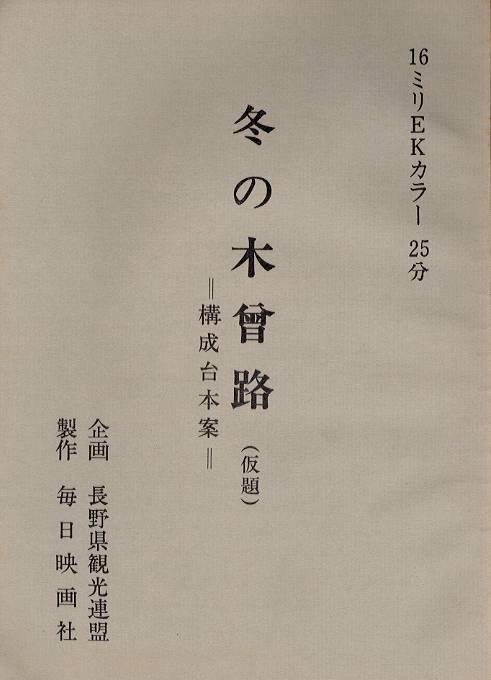 16ミリEKカラー 25分
冬の木曾路(仮題)
=構成台本案=
企画 長野県観光連盟
製作 毎日映画社